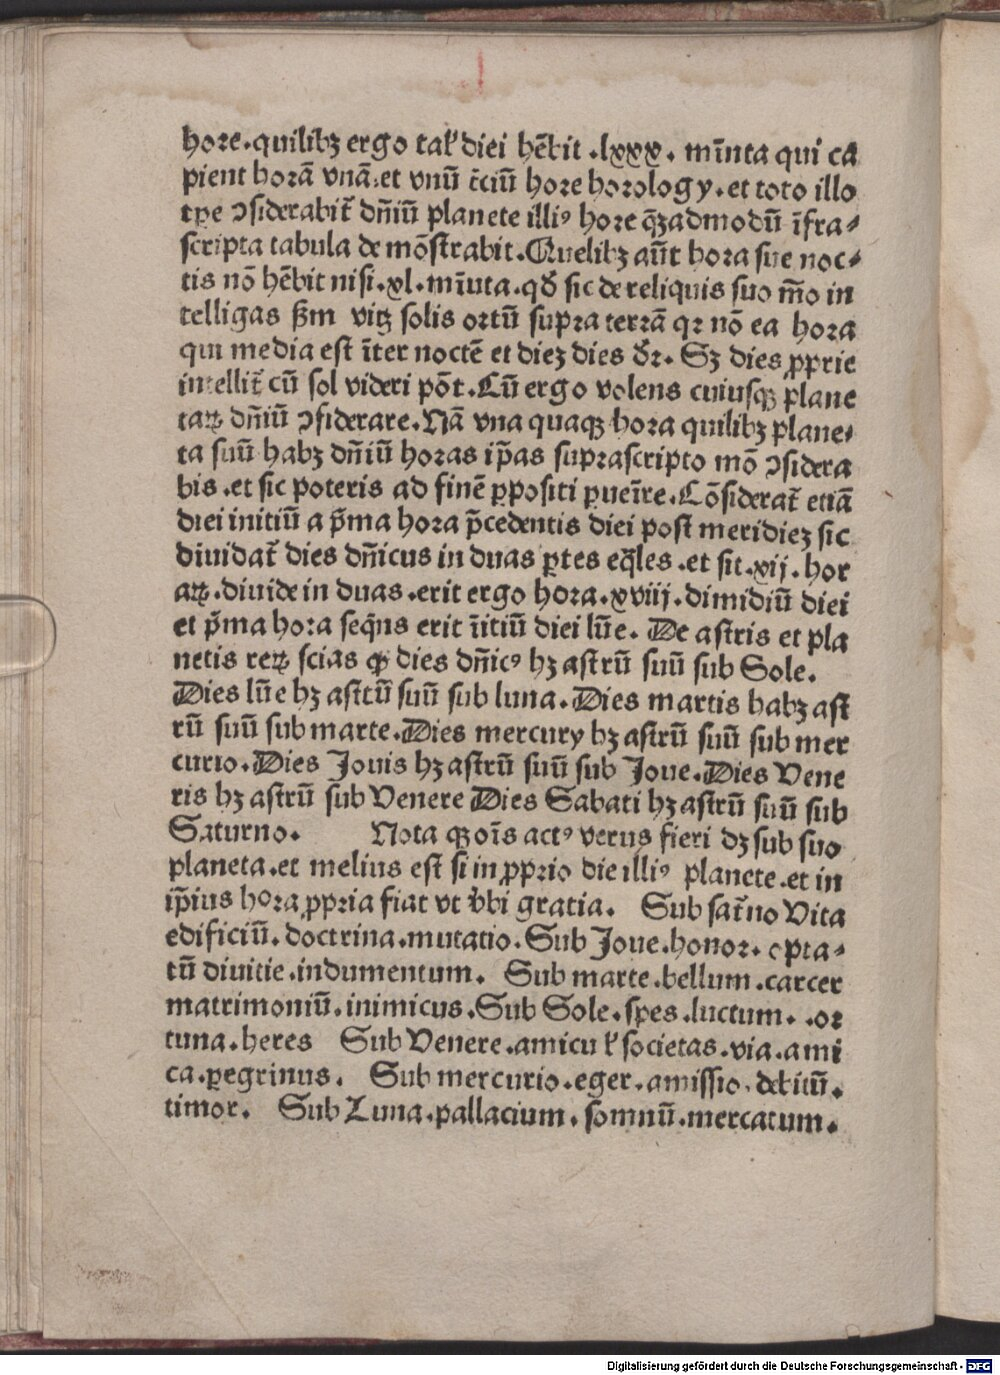 hore.quilibꝫ ergo tal᷎ diei hēbit .lxxx. mīnta qui ca
pient horā vnā.et vnū t̄ciū hore horology.et toto illo
tp̄e ↄsiderabit᷎ dn̄iū planete illiꝰ hore qꝫadmodū īfra⸗
scripta tabula de mōstrabit.Quelibꝫ aūt hora sue noc⸗
tis nō hēbit nisi.xl.mīuta.qd̄ sic de reliquis suo mō in
telligas ẜm vitꝫ solis ortū supra terrā qꝛ nō ea hora
qui media est īter noctē et dieꝫ dies dr̄. Sꝫ dies ꝓprie
intellit᷎ cū sol videri pōt.Cū ergo volens cuiusqꝫ plane
taꝝ dn̄iū ↄsiderare.Nā vna quaqꝫ hora quilibꝫ plane⸗
ta suū habꝫ dn̄iū horas ip̄as suprascripto mō ↄsidera
bis.et sic poteris ad finē ꝓpositi ꝑueīre.Cōsiderat᷎ etiā
diei initiū a p̄ma hora p̄cedentis diei post meridieꝫ sic
diuidat᷎ dies dn̄icus in duas ꝑtes eq̄les.et sit.xij.hor
aꝝ.diuide in duas.erit ergo hora.xviij.dimidiū diei
et p̄ma hora seq̄ns erit īitiū diei lūe. De astris et pla
netis reꝝ scias ꝙ dies dn̄icꝰ hꝫ astrū suū sub Sole.
Dies lūe hꝫ astrū suū sub luna.Dies martis habꝫ ast
rū suū sub marte.Dies mercury hꝫ astrū suū sub mer
curio.Dies Jouis hꝫ astrū suū sub Joue.Dies Vene
ris hꝫ astrū sub Venere Dies Sabati hꝫ astrū suū sub
Saturno. Nota qꝫ oīs actꝰ verus fieri dꝫ sub suo
planeta.et melius est si in ꝓprio die illiꝰ planete.et in
ip̄ius hora ꝓpria fiat vt v̄bi gratia. Sub sat᷎no Vita
edificiū.doctrina.mutatio.Sub Joue.honor.opta⸗
tū diuitie.indumentum. Sub marte.bellum.carcer
matrimoniū.inimicus.Sub Sole.spes.luctum. .or
tuna.heres Sub Venere.amicu l᷎ societas.via.ami
ca.ꝑegrinus. Sub mercurio.eger.amissio.debitū.
timor. Sub Luna.pallacium.somnū.mercatum.
Digitalisierung gefördert durch die Deutsche Forschungsgemeinschaft - DFG